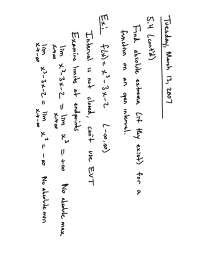 Tuesday, March 13, 2007
5.4 (cont'd)
Find absolute extrema (if they exist) for a
function on an open interval.
Ex: f(x) = x³ - 3x - 2 (-∞, ∞)
Interval is not closed, can't use EVT
Examine limits at endpoints
lim x³ - 3x - 2 = lim x³ = +∞ No absolute max
x→∞ x→∞
lim x³ - 3x - 2 = lim x³ = -∞ No absolute min
x→-∞ x→-∞